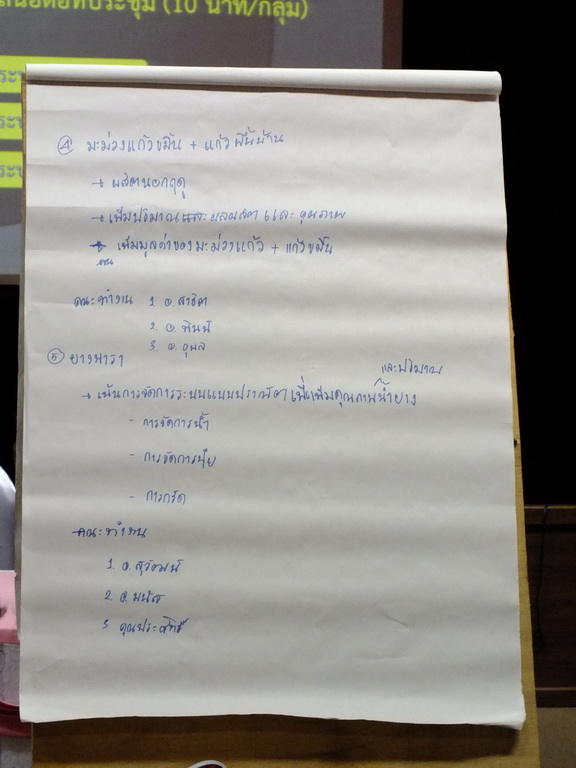 ต่อที่ประชุม (10 นาที/กลุ่ม)
④ มะม่วงแก้วขมิ้น + แก้วพื้นบ้าน
→ ผลิตนอกฤดู
→ เพิ่มปริมาณ ผลผลิต และ คุณภาพ
→ เพิ่มมูลค่าของมะม่วงแก้ว + แก้วขมิ้น
คณะทำงาน 1. อ. สาธิต
2. อ.
3. อ.
⑤ ยางพารา
และปริมาณ
→ เน้นการจัดการระบบแบบปราณีต เพื่อเพิ่มคุณภาพน้ำยาง
- การจัดการน้ำ
- การจัดการปุ๋ย
- การกรีด
คณะทำงาน
1. อ. สุวัฒน์
2. อ. มนัส
3. คุณประสิทธิ์